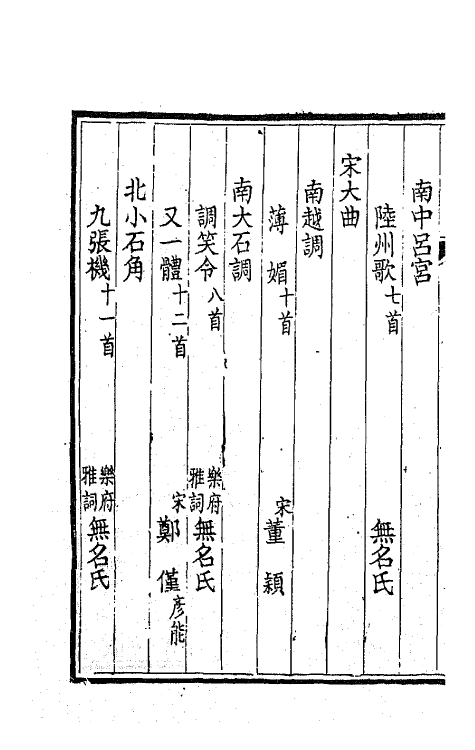 南中呂宮
陸州歌七首 無名氏
宋大曲
南越調
薄媚十首 宋董穎
南大石調
調笑令八首 樂府雅詞無名氏
又一體十二首 宋鄭僅彥能
北小石角
九張機十一首 樂府雅詞無名氏